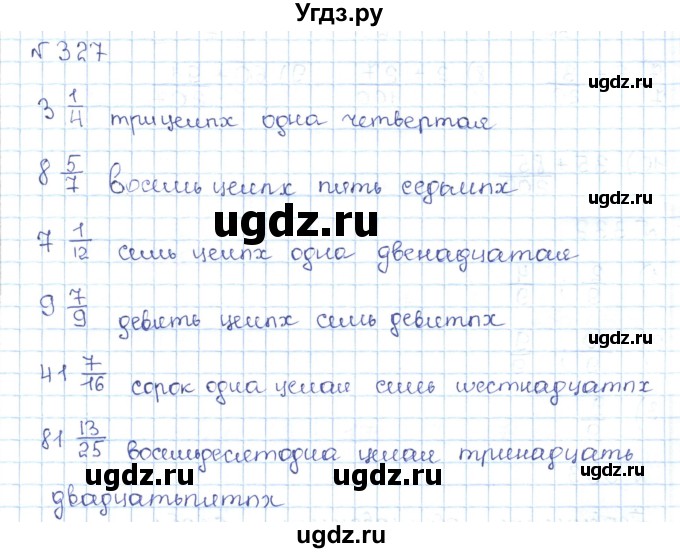 Угдз.ру
№ 327
ugdz.ru
3 1/4 три целых одна четвертая
ugdz.ru
8 5/7 восемь целых пять седьмых
ugdz.ru
ugdz.ru
7 1/12 семь целых одна двенадцатая
ugdz.ru
9 7/9 девять целых семь девятых
ugdz.ru
41 7/16 сорок одна целая семь шестнадцатых
81 13/25 восемьдесятодна целая тринадцать
ugdz.ru
ugdz.ru
ugdz.ru
двадцатьпятых